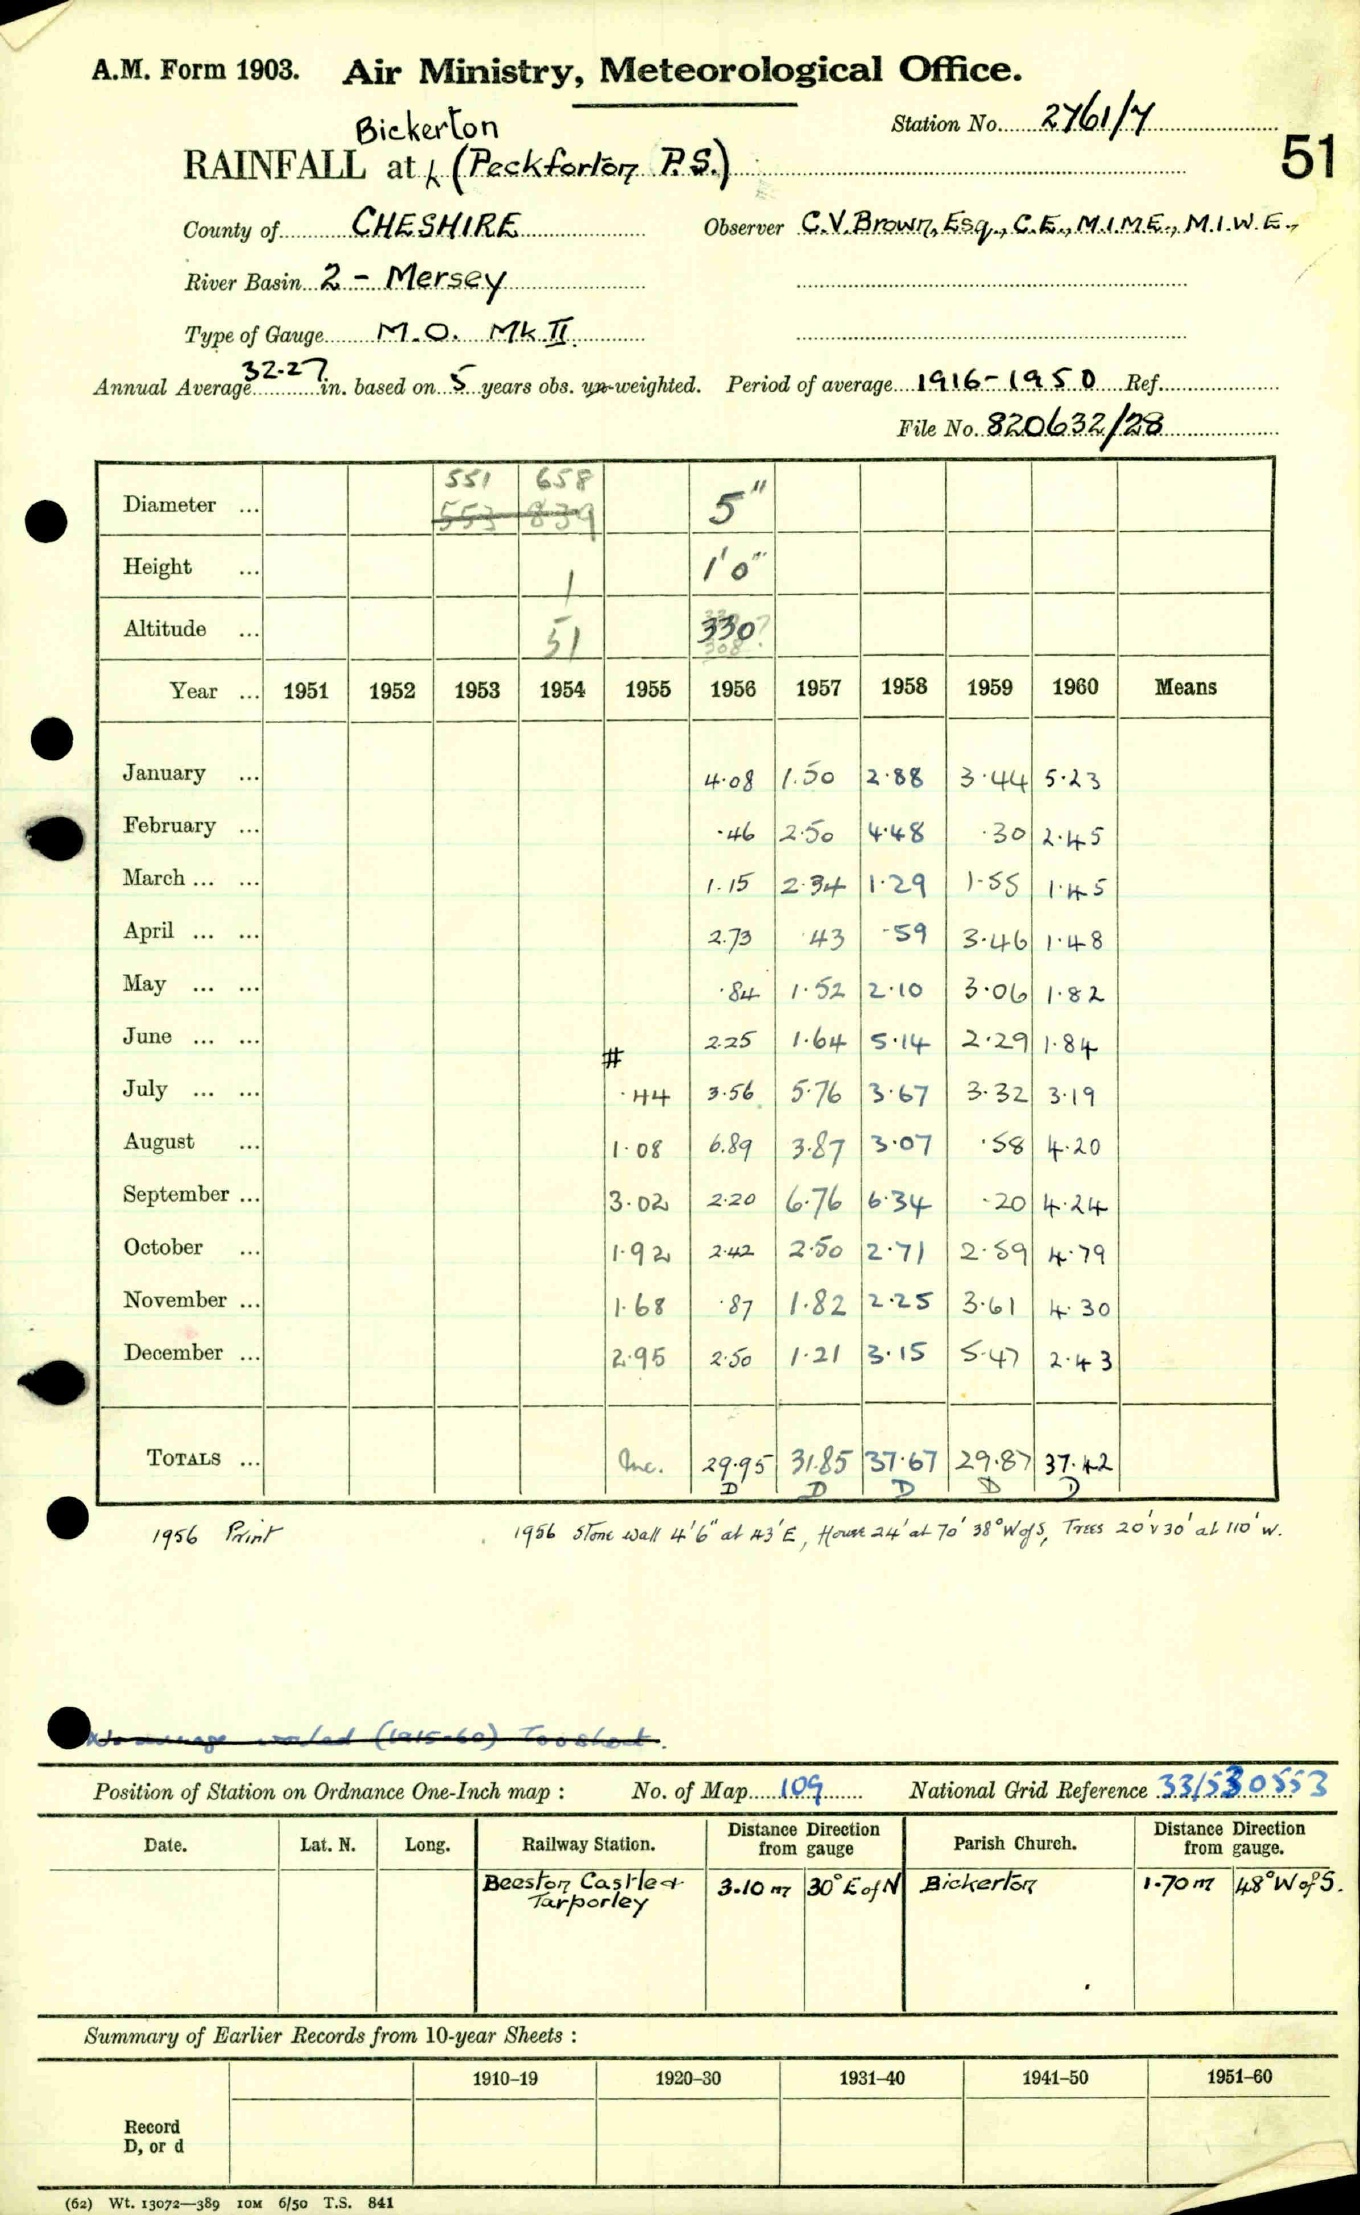 A.M. Form 1903. Air Ministry, Meteorological Office.
Station No. 2761/7
51
Bickerton
RAINFALL at (Peckforton P.S.)
County of CHESHIRE Observer C.V. Brown, Esq., C.E., M.I.M.E., M.I.W.E.,
River Basin 2 - Mersey
Type of Gauge M.O. Mk II.
Annual Average 32.27 in. based on 5 years obs. un-weighted. Period of average 1916-1950 Ref.
File No. 820632/28
551 658
Diameter ... 553 839 5"
Height ... 1 1'0"
Altitude ... 51 330
Year ... 1951 1952 1953 1954 1955 1956 1957 1958 1959 1960 Means
January ... 4.08 1.50 2.88 3.44 5.23
February ... .46 2.50 4.48 .30 2.45
March ... ... 1.15 2.34 1.29 1.55 1.45
April ... ... 2.73 .43 .59 3.46 1.48
May ... ... .84 1.52 2.10 3.06 1.82
June ... ... 2.25 1.64 5.14 2.29 1.84
#
July ... ... .44 3.56 5.76 3.67 3.32 3.19
August ... 1.08 6.89 3.87 3.07 .58 4.20
September ... 3.02 2.20 6.76 6.34 .20 4.24
October ... 1.92 2.42 2.50 2.71 2.59 4.79
November ... 1.68 .87 1.82 2.25 3.61 4.30
December ... 2.95 2.50 1.21 3.15 5.47 2.43
TOTALS ... Inc. 29.95 31.85 37.67 29.87 37.42
D D D D D
1956 Print 1956 Stone wall 4'6" at 43'E, House 24' at 70' 38° W of S, Trees 20' v 30' at 110' W.
No average worked (1915-60) Too short.
Position of Station on Ordnance One-Inch map : No. of Map 109 National Grid Reference 33/530553
Date. Lat. N. Long. Railway Station. Distance from Direction gauge Parish Church. Distance from Direction gauge.
Beeston Castle & Tarporley 3.10 m 30° E of N Bickerton 1.70 m 48° W of S.
Summary of Earlier Records from 10-year Sheets :
1910–19 1920–30 1931–40 1941–50 1951–60
Record
D, or d
(62) Wt. 13072—389 10M 6/50 T.S. 841